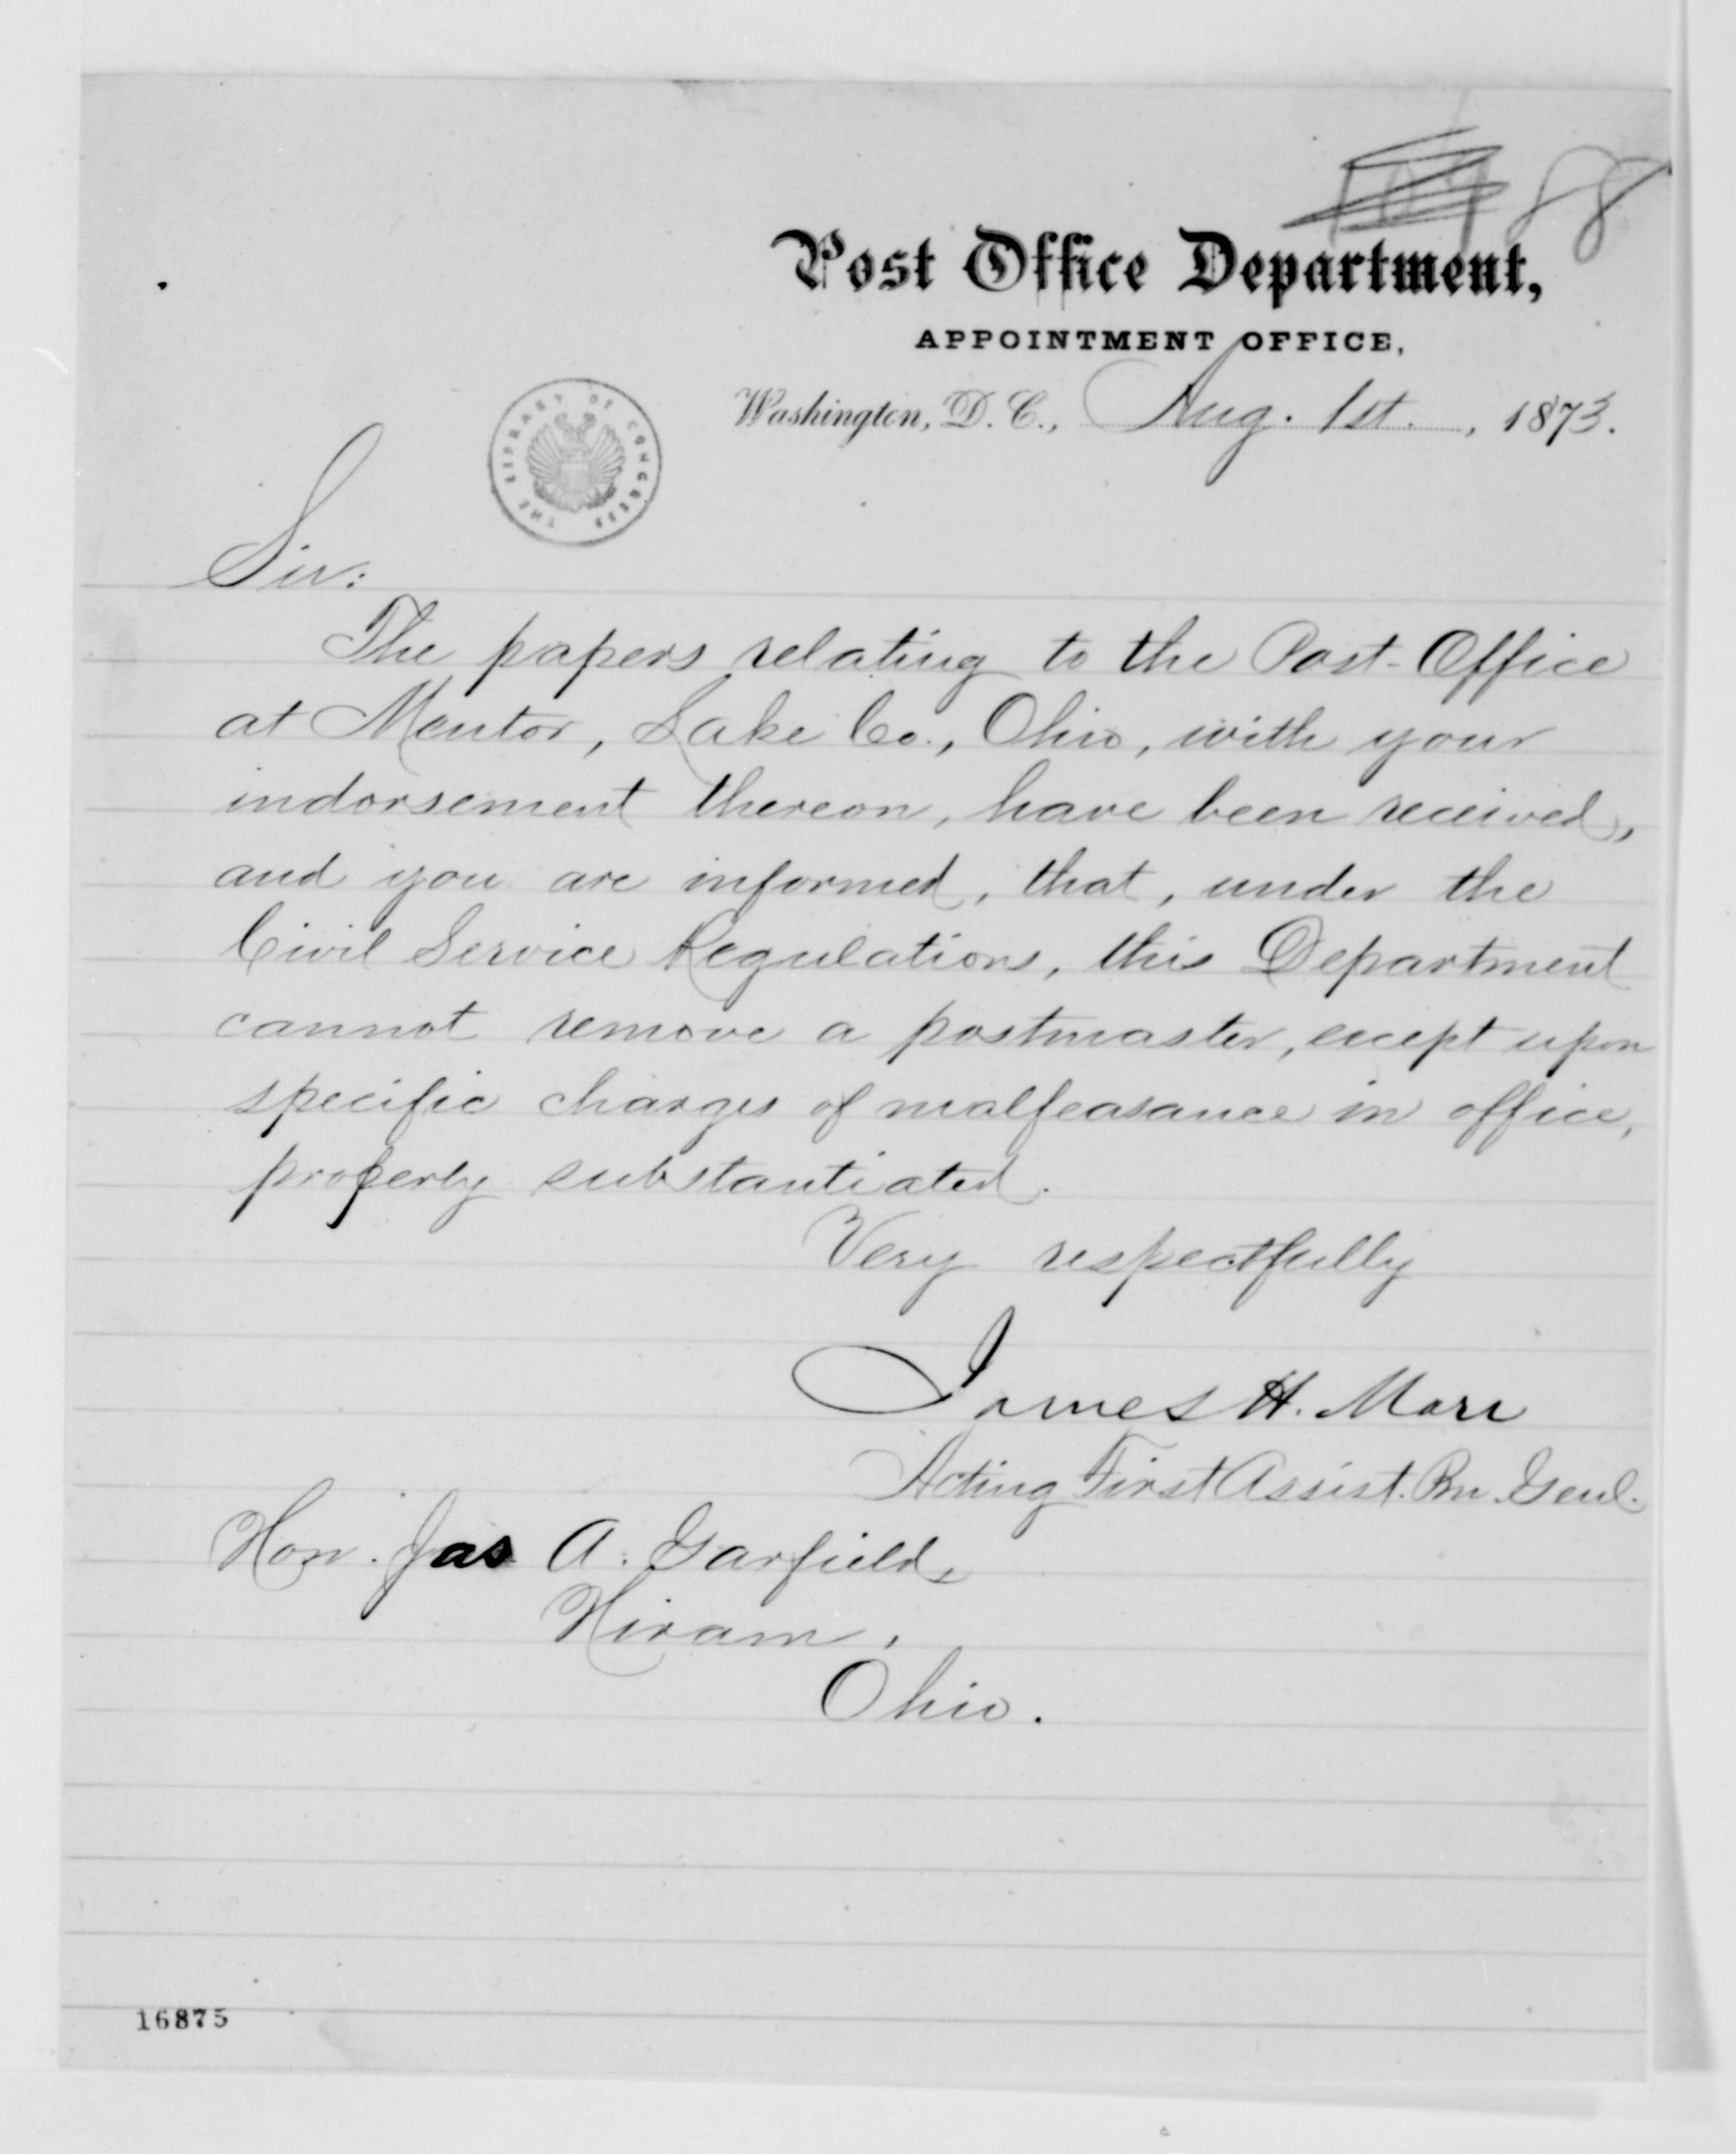 88
Post Office Department,
APPOINTMENT OFFICE,
Washington, D. C., Aug. 1st., 1873.
THE LIBRARY OF CONGRESS
Sir:
The papers relating to the Post-Office
at Mentor, Lake Co., Ohio, with your
indorsement thereon, have been received,
and you are informed, that, under the
Civil Service Regulations, this Department
cannot remove a postmaster, except upon
specific charges of malfeasance in office,
properly substantiated.
Very respectfully
James H. Marr
Acting First Assist. Pm. Genl.
Hon. Jas A. Garfield,
Hiram,
Ohio.
16875